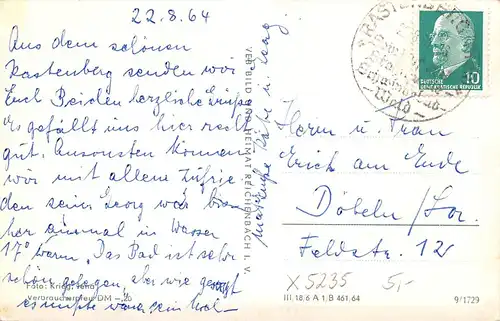 22.8.64
Aus dem schönen
Rastenberg senden wir
Euch Beiden herzliche Grüße
Es gefällt uns hier recht
gut. Ansonsten können
wir mit allem zufrie
den sein Georg war bis
her einmal in Wasser
17° warm. Das Bad ist sehr
schön gelegen, aber wie gesagt
es müßte wärm sein
Käte u. Georg
VERBILD UND HEIMAT REICHENBACH I. V.
RASTENBERG
10
DEUTSCHE
DEMOKRATISCHE REPUBLIK
Herrn u. Frau
Erich am Ende
Döbeln/Sa.
Feldstr. 12
Foto: Krieg, Jena
Verbraucherpreis DM -,20
X 5235 5,-
III 18/6 A 1, B 461/64
9/1729